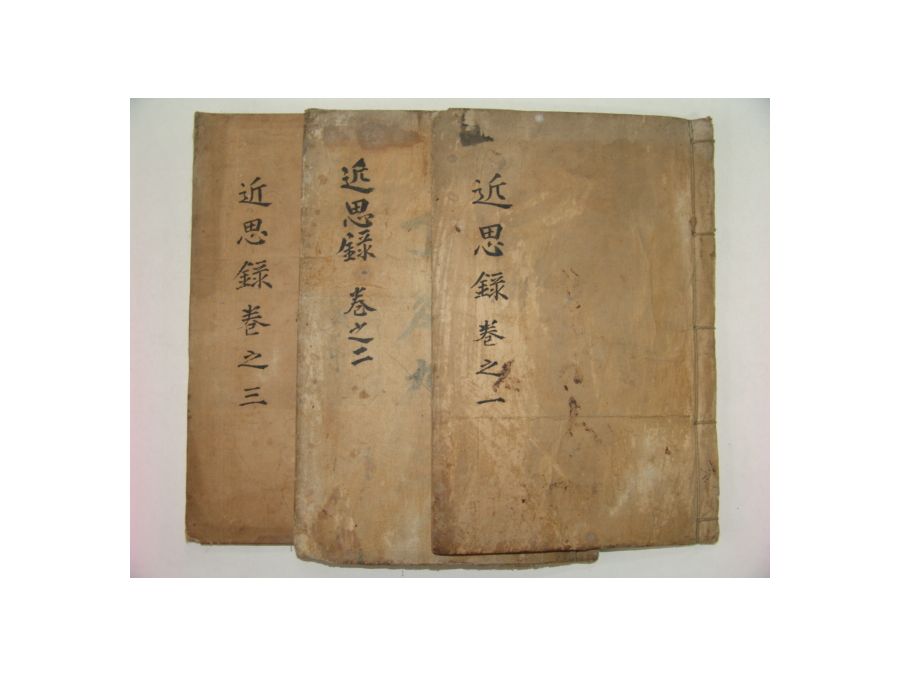 近思錄卷之一
近思錄 卷之二
近思錄卷之三